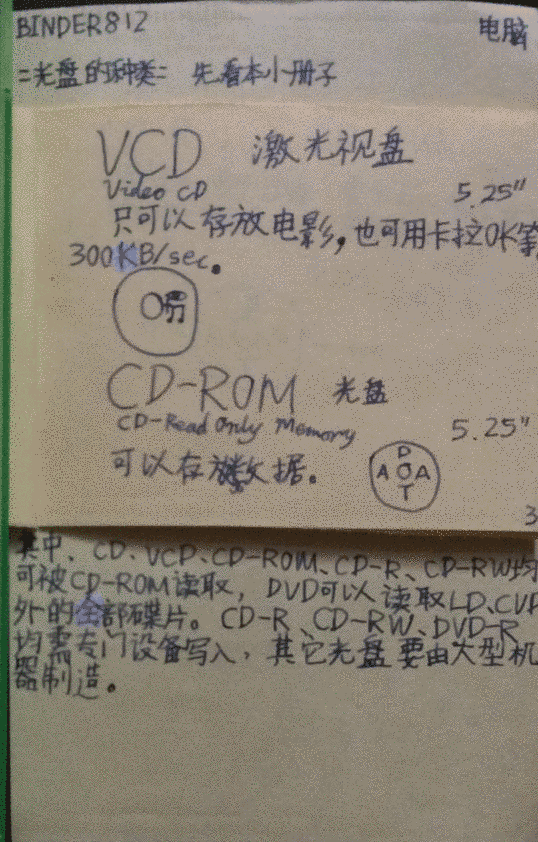 BINDER812 电脑
=光盘的种类= 先看本小册子
VCD 激光视盘
Video CD 5.25"
只可以存放电影,也可用卡拉OK等
300KB/sec。
CD-ROM 光盘
CD-Read Only Memory 5.25"
可以存放数据。
D
A O A
T
3
其中、CD、VCD、CD-ROM、CD-R、CD-RW均
可被CD-ROM读取,DVD可以读取LD、CVD
外的全部碟片。CD-R、CD-RW、DVD-R
均需专门设备写入,其它光盘要由大型机
器制造。